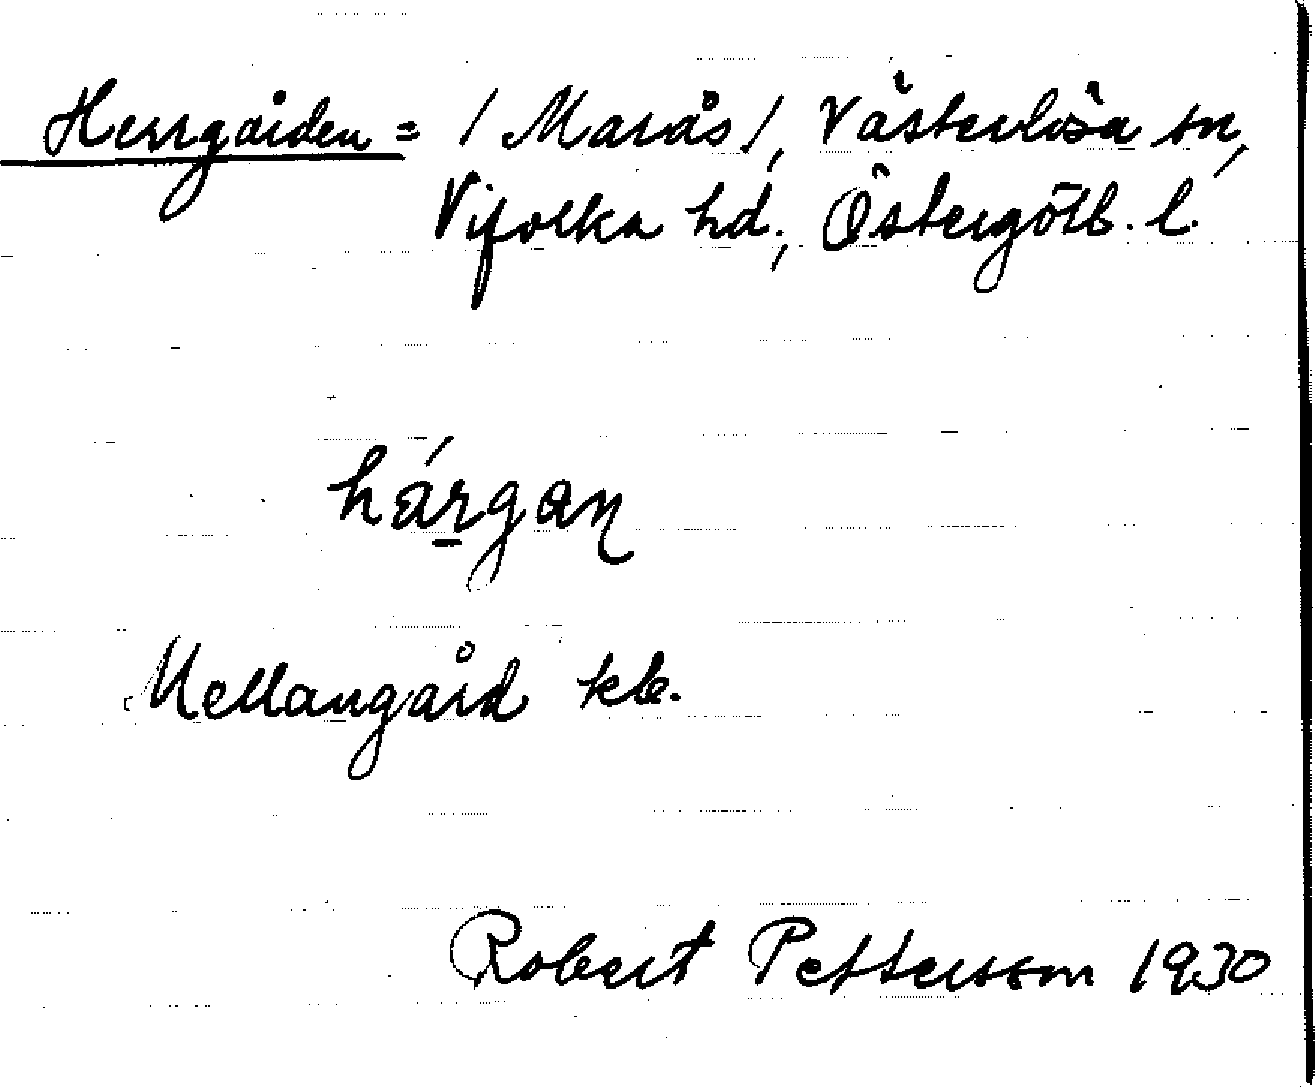 Herrgården = / Marås /, Västerlösa sn,
Vifolka hd., Östergötl. l.
hárgan
Mellangård kb.
Robert Pettersson 1930